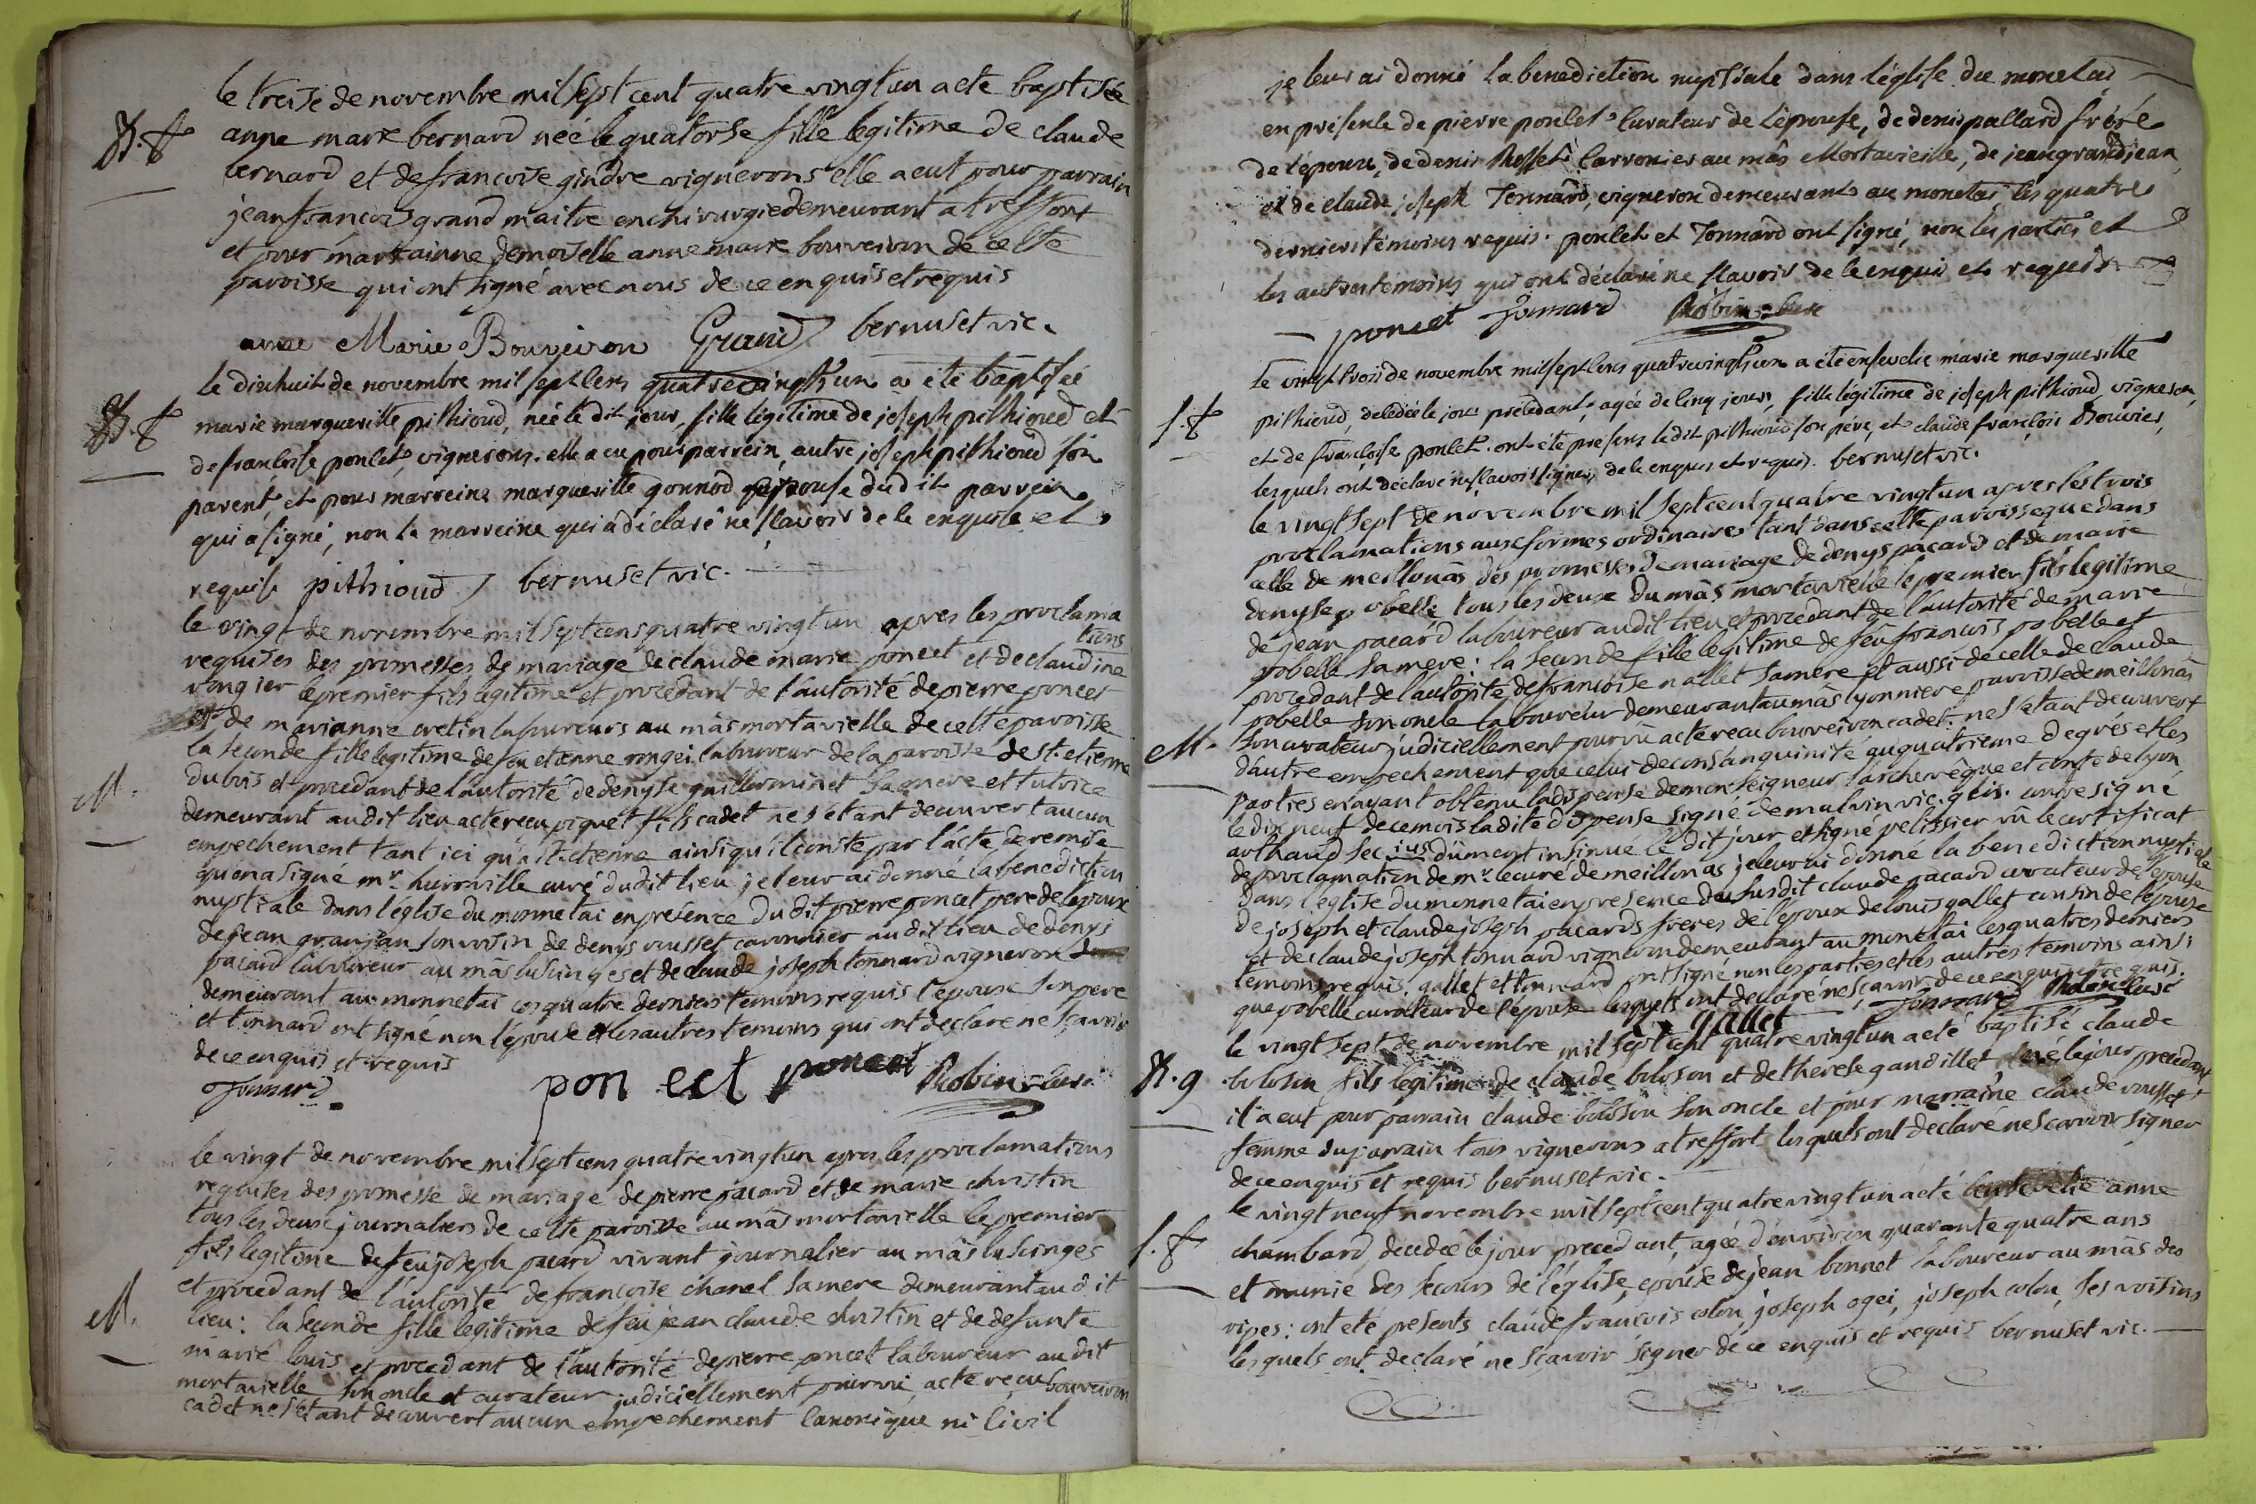 le treise de novembre mil sept cent quatre vingt un a eté baptisée
B. f. anne marie bernard neé le quatorse fille legitime de claude
bernard et de francoise gindre vignerons elle a eut pour parrain
jean francois grand maitre en chirurgie demeurant a treffort
et pour marrainne demoiselle anne marie bouveiron de cette
paroisse qui ont signé avec nous de ce enquis et requis
anne Marie Bouveiron Grand bernuset vic.
le dixhuit de novembre mil sept cens quatre vingts un a été baptisée
B. f. marie margueritte pithioud, née le dit jour, fille légitime de joseph pithioud et
de francoise poncet, vignerons. elle a eu pour parrein, autre joseph pithioud son
parent, et pour marreine marguerille gonnod epouse du dit parrein
qui a signé, non la marreine qui a déclaré ne sçavoir de ce enquise et
requise pithioud bernuset vic.
le vingt de novembre mil sept cens quatre vingt un apres les proclama
tions
requises des promesses de mariage de claude marie poncet et de claudine
rongier le premier fils legitime et procedant de l'autorité de pierre poncet
et de marianne cretin laboureurs au mâs mortavielle de cette paroisse
la seconde fille legitime de feu etienne rongei laboureur de la paroisse de st. etienne
M. du bois et procedant de l'autorité de denyse guillerminet sa mere et tutrice
demeurant au dit lieu acte recu piquet fils cadet ne s'etant decouvert aucun
empechement tant ici qu'a st. etienne ainsi qu'il conste par l'acte de remise
qu'en a signé mr. huronville curé du dit lieu je leur ai donné la benediction
nuptiale dans l'église du monnetai en presence du dit pierre poncet pere de l'epoux
de jean granjan son voisin de denys rousset cavonnier au dit lieu de denys
pacard laboureur au mâs lusinges et de claude joseph tonnard vigneron
demeurant au monnetai les quatre derniers temoins requis l'epoux son pere
et tonnard ont signé non l'epouse et les autres temoins qui ont declaré ne sçavoir
de ce enquis et requis
Tonnard pon cet poncet Robin curé
le vingt de novembre mil sept cens quatre vingt un apres les proclamations
requises des promesse de mariage de pierre pacard et de marie christin
tous les deux journaliers de cette paroisse au mâs mortavielle le premier
fils legitime de feu joseph pacard vivant journalier au mâs lusinges
et procedant de l'autorité de francoise chanel sa mere demeurant au dit
M. lieu: la seconde fille legitime de feu jean claude christin et de defunte
marie louis et procedant de l'autorité de pierre poncet laboureur au dit
mortavielle son oncle et curateur judiciellement pourvu, acte reçu bouveiron
cadet ne s'etant decouvert aucun empechement canonique ni civil
je leur ai donné la benediction nuptiale dans l'église du monetai
en présence de pierre poncet curateur de l'épouse, de denis pallard frère
de l'époux, de denis Rousset carronier au mâs Mortavieille, de jean grandjean
et de claude joseph Tonnard, vigneron demeurant au monetai, les quatre
derniers témoins requis. poncet et Tonnard ont signé, non les parties et
les autres témoins qui ont déclaré ne sçavoir de ce enquis et requis
poncet Tonnard Robin curé
le vingt trois de novembre mil sept cens quatre vingts un a été ensevelie marie marguerille
S. f. pithioud, décédée le jour précédant agée de cinq jours, fille légitime de joseph pithioud, vigneron,
et de françoise poncet. ont été presens le dit pithioud son père, et claude françois Bouvier,
lesquels ont déclaré ne sçavoir signer, de ce enquis et requis. bernuset vic.
le vingt sept de novembre mil sept cent quatre vingt un apres les trois
proclamations aux formes ordinaires tant dans cette paroisse que dans
celle de meillonâs des promesses de mariage de denys pacard et de marie
denyse pobelle tous les deux du mâs mortavielle le premier fils legitime
de jean pacard laboureur au dit lieu et procedant de l'autorité de marie
pobelle sa mere: la seconde fille legitime de feu francois pobelle et
procedant de l'autorité de francoise nallet sa mere et aussi de celle de claude
pobelle son oncle laboureur demeurant au mâs lyonniere paroisse de meillonas
M. son curateur judiciellement pourvu acte recu bouveiron cadet. ne s'etant decouvert
d'autre empechement que celui de consanguinité au quatrieme degrés et les
parties en ayant obtenu la dispense de monseigneur l'archevêque et comte de lyon
le dix neuf de ce mois la dite dispense signé de malvin vic. gen. contre signé
arthaud sec. ius. dûment insinué le dit jour et signé pelissier vû le certificat
de proclamation de mr. le curé de meillonas je leur ai donné la benediction nuptiale
dans l'eglise du monnetai en presence du susdit claude pacard curateur de l'epouse
de joseph et claude joseph pacards freres de l'epoux de louis gallet cousin de l'epouse
et de claude joseph tonnard vigneron demeurant au monetai les quatres derniers
temoins requis. gallet et tonnard ont signé non les parties et les autres temoins ainsi
que pobelle curateur de l'epouse lesquels ont declaré ne sçavoir de ce enquis et requis.
L. gallet Tonnard Robin curé
le vingt sept de novembre mil sept cent quatre vingt un a eté baptisé claude
B. g. boloson fils legitime de claude boloson et de therese gandillet né le jour precedant
il a eut pour parrain claude boloson son oncle et pour marraine claude rousset
femme du parrain tous vignerons a treffort lesquels ont declaré ne scavoir signer
de ce enquis et requis bernuset vic.
le vingt neuf novembre mil sept cent quatre vingt un a eté ensevelie anne
S. f. chambard decedeé le jour precedant, agée d'environ quarante quatre ans
et munie des secours de l'église, epouse de jean bonnet laboureur au mâs des
ripes: ont eté presents claude francois colon, joseph ogei, joseph colon, ses voisins
lesquels ont declaré ne sçavoir signer de ce enquis et requis bernuset vic.